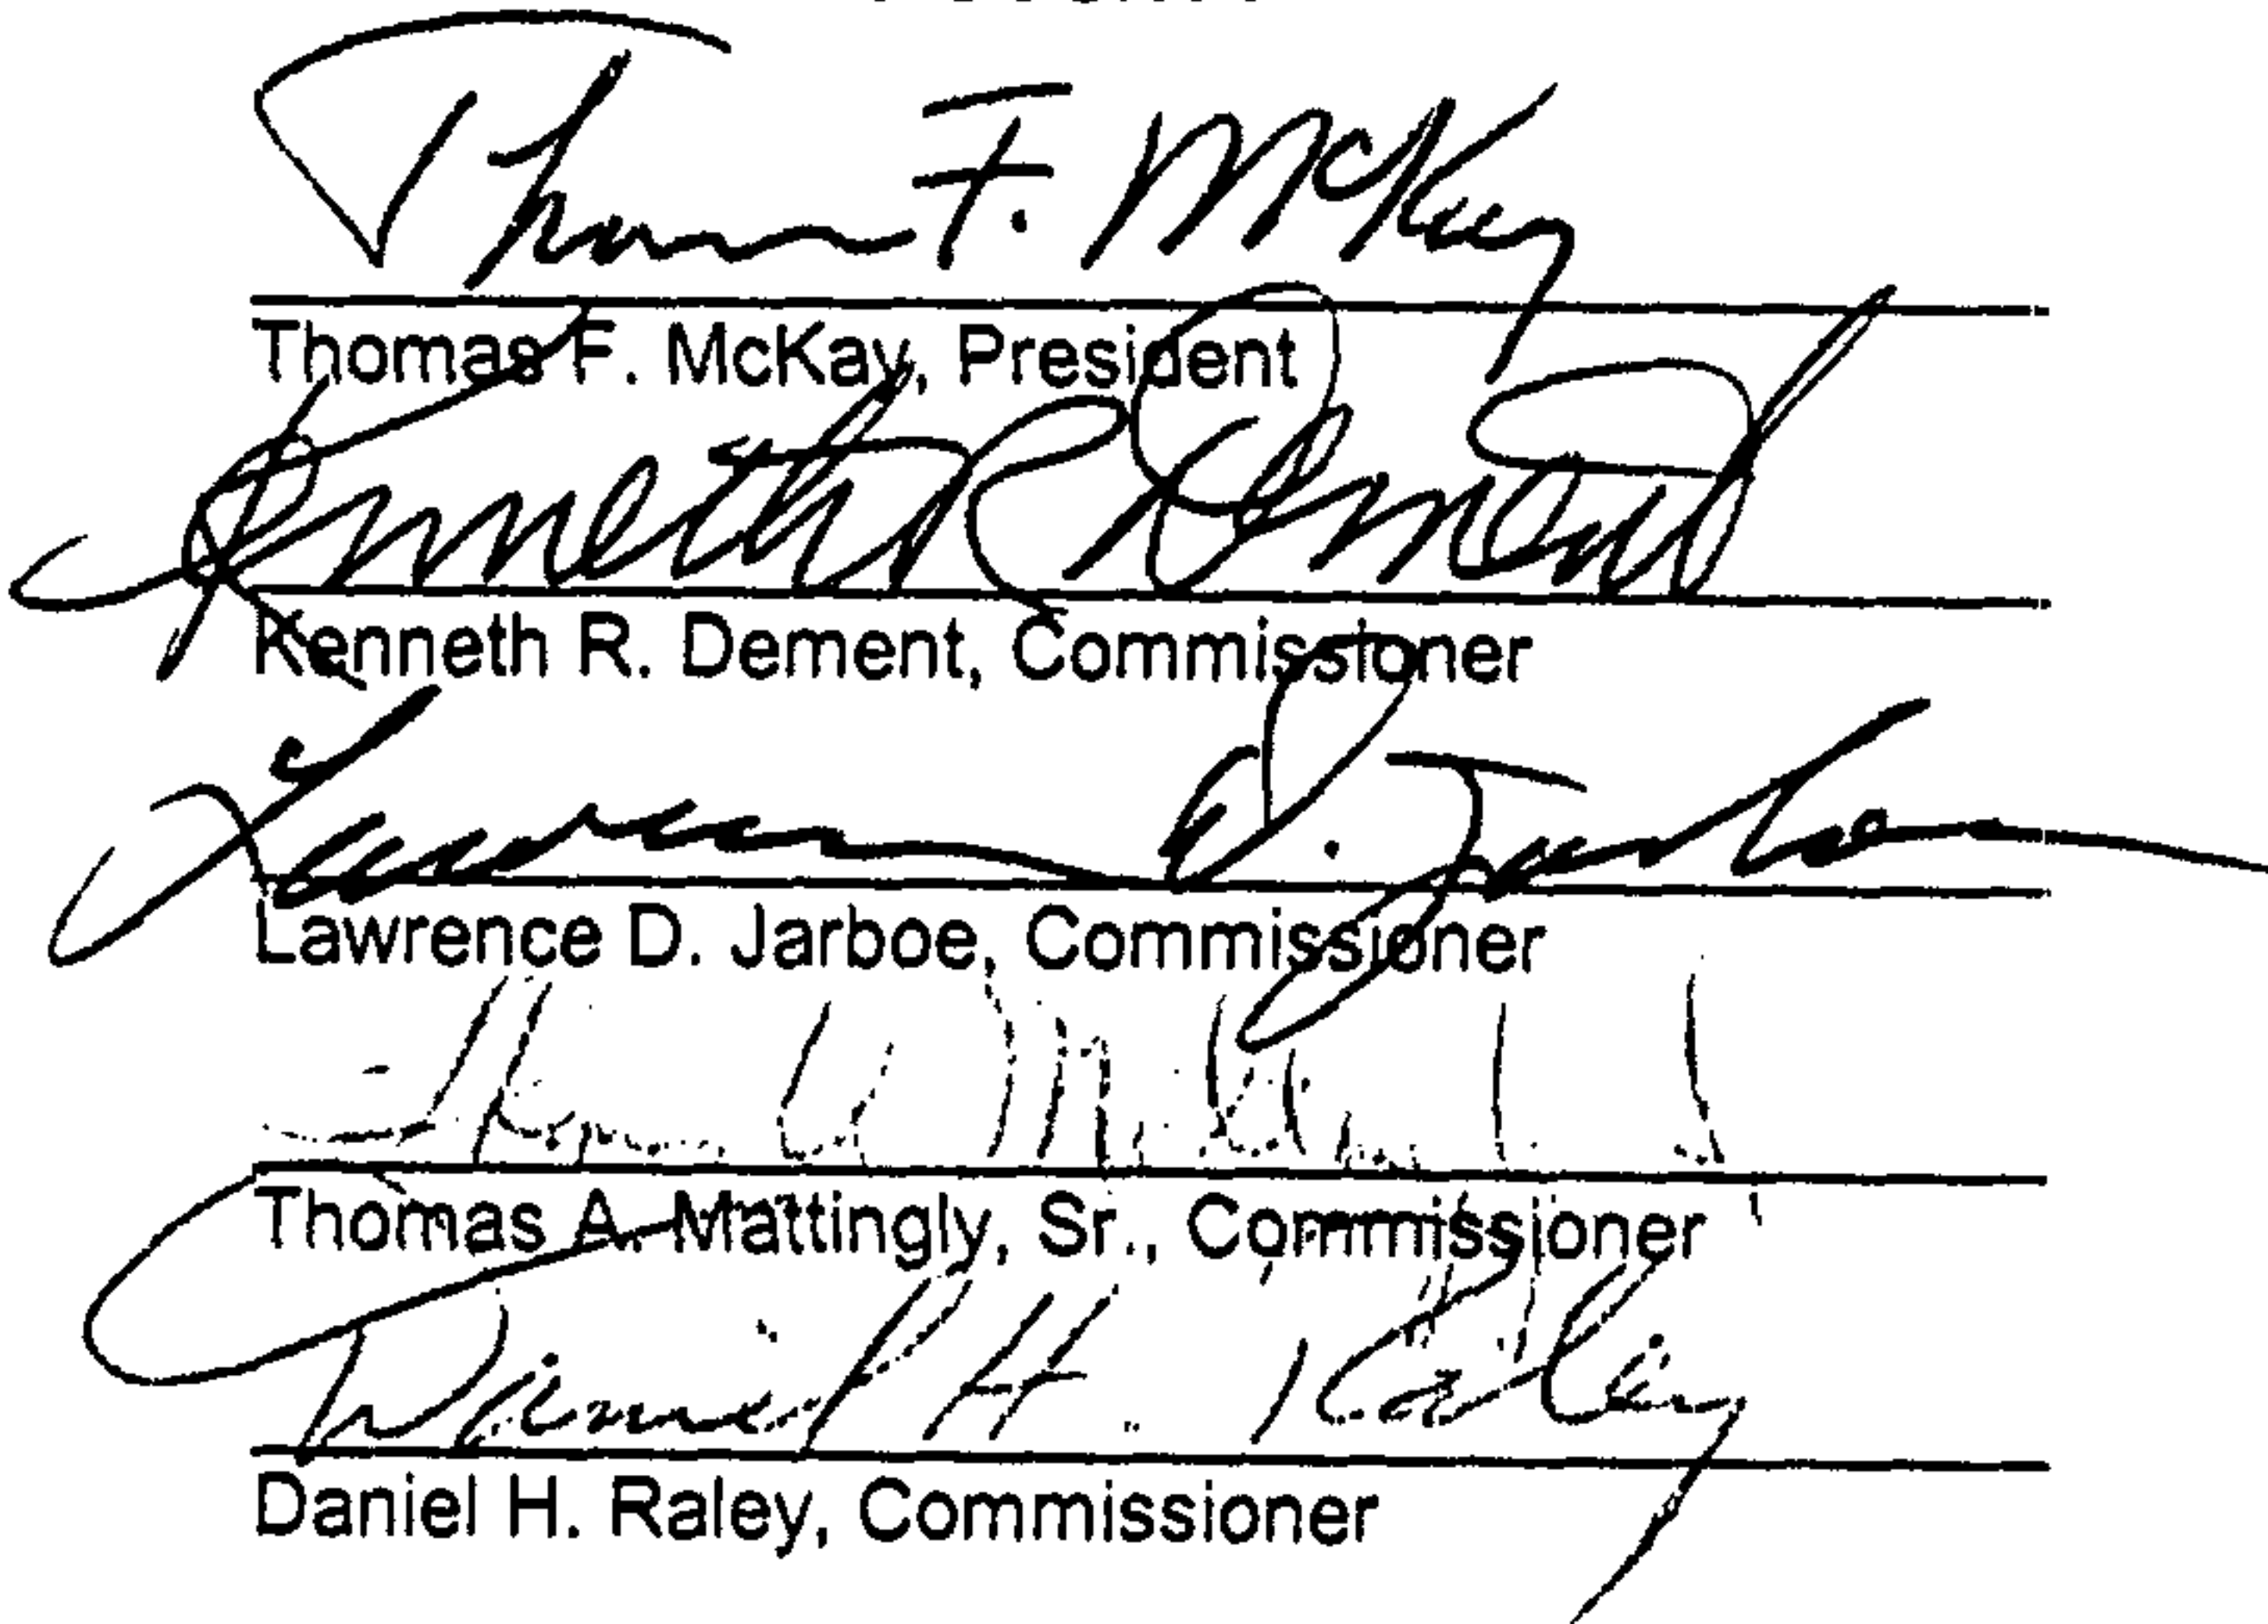 Thomas F. McKay
Thomas F. McKay, President
Kenneth R Dement
Kenneth R. Dement, Commissioner
Lawrence D. Jarboe
Lawrence D. Jarboe, Commissioner
Thomas A. Mattingly, Sr., Commissioner
Daniel H. Raley
Daniel H. Raley, Commissioner